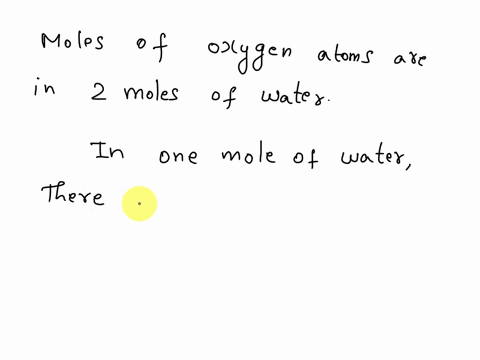 Moles of oxygen atoms are
in 2 moles of water.
In one mole of water,
There